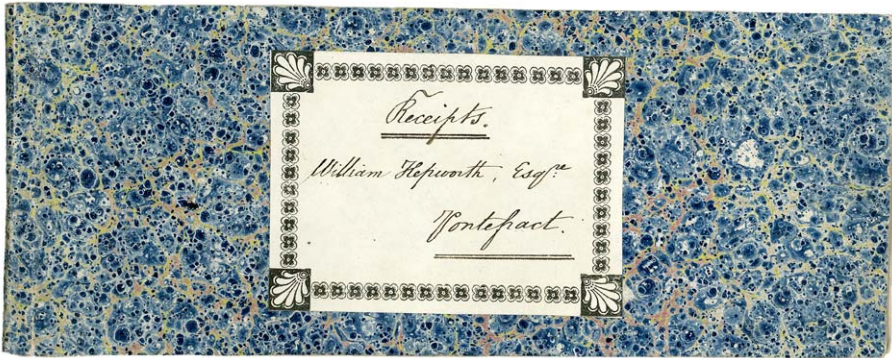 Receipts.
William Hepworth, Esqre
Pontefract.